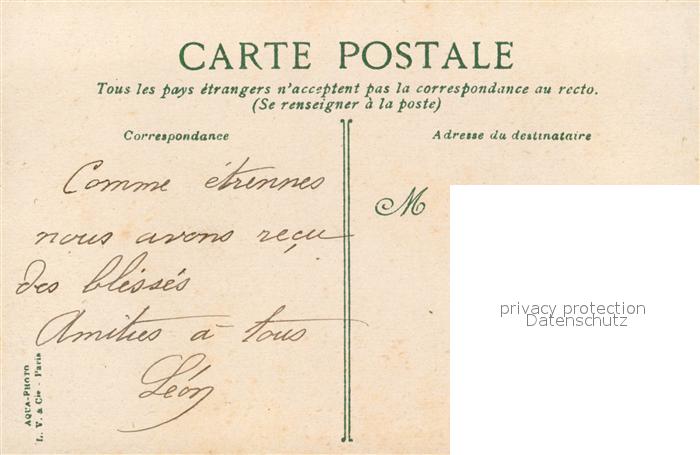 CARTE POSTALE
Tous les pays étrangers n'acceptent pas la correspondance au recto.
(Se renseigner à la poste)
Correspondance
Comme étrennes
nous avons reçu
des blessés
Amitiés à tous
Léon
AQUA-PHOTO
L. V. & Cie - Paris
Adresse du destinataire
M
privacy protection
Datenschutz